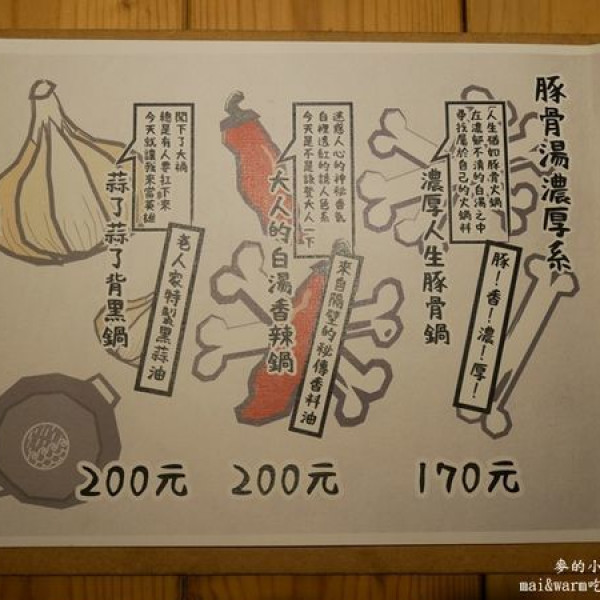 豚骨湯濃厚系
人生猶如豚骨火鍋
在濃郁不濆的白湯之中
尋找屬於自己的火鍋料
濃厚人生豚骨鍋
豚!香!濃!厚!
170元
迷惑人心的神秘香氣
白裡透紅的誘人色系
今天是不是該登大人一下
大人的白湯香辣鍋
來自隔壁的秘傳香料油
200元
闖下了大禍
總是有人要扛下來
今天就讓我來當英雄
蒜了蒜了背黑鍋
老人家特製黑蒜油
200元
麥的小
mai&warm吃